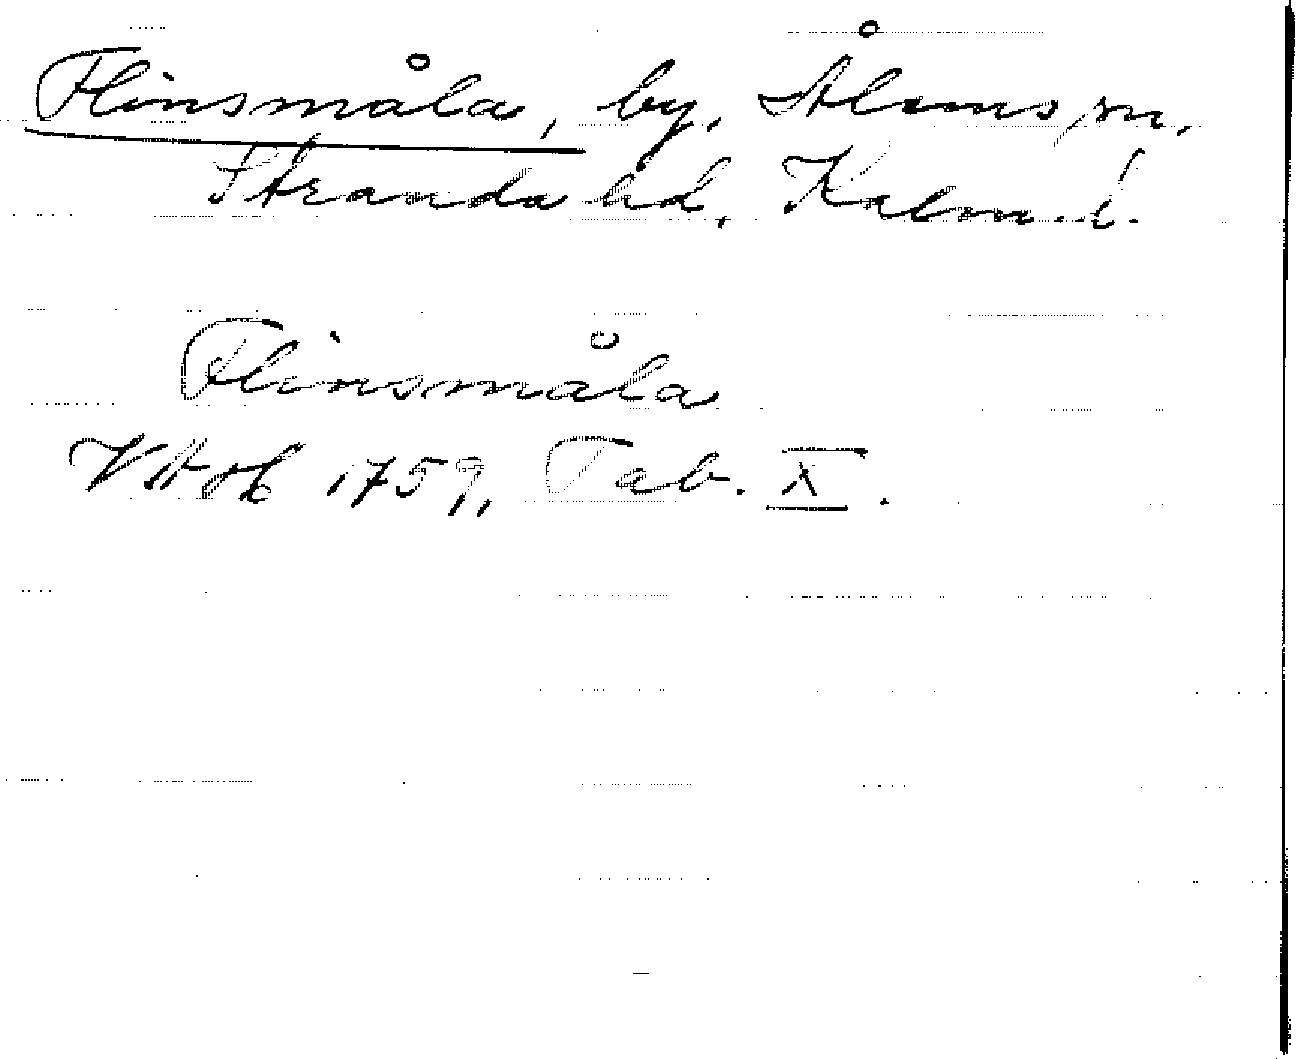 Flinsmåla, by, Ålems sn,
Stranda hd, Kalm. l.
Flinsmåla
VAH 1759, Tab. X.